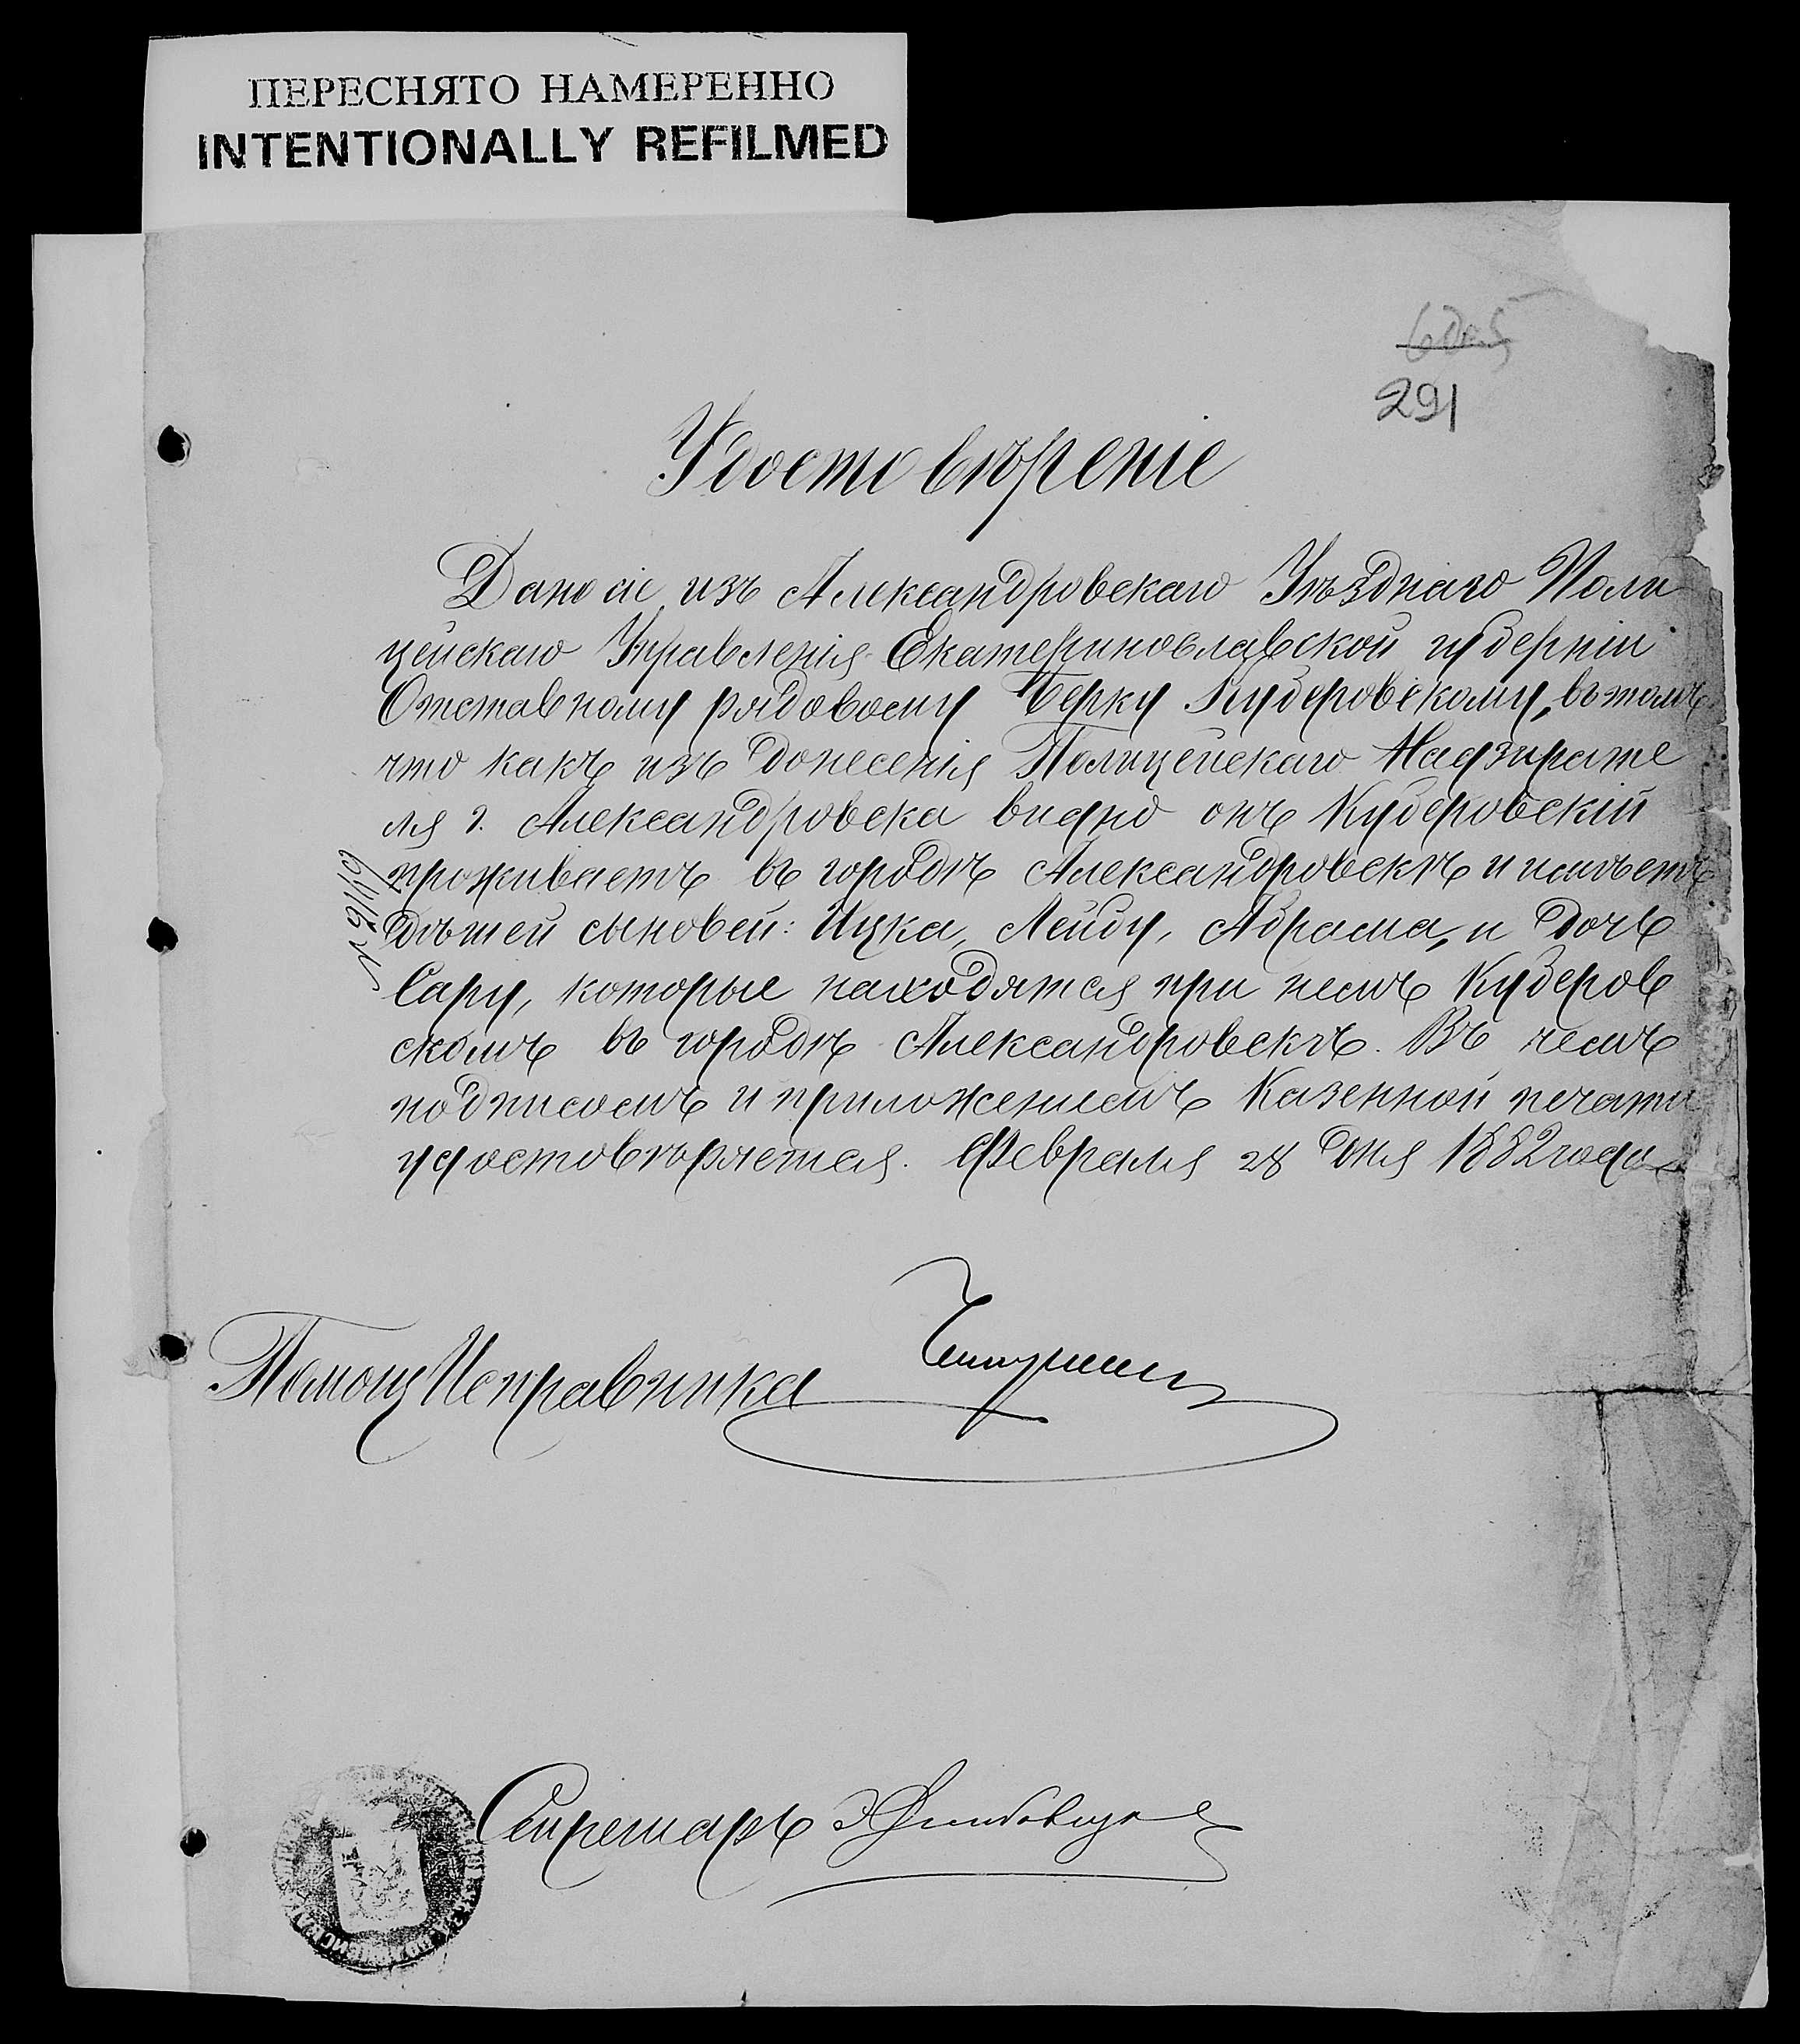 ПЕРЕСНЯТО НАМЕРЕННО
INTENTIONALLY REFILMED
291
Удостовѣреніе
Дано сіе изъ Александровскаго Уѣзднаго Поли
цейскаго Управленія Екатеринославской губерніи
Отставному рядовому Берку Кудеровскому, въ томъ
что какъ изъ донесенія Полицейскаго Надзирате
ля г. Александровска видно онъ Кудеровскій
проживаетъ въ городѣ Александровскѣ и имѣетъ
дѣтей сыновей: Ицка, Лейбу, Абрама, и дочь
Сару, которые находятся при немъ Кудеров
скомъ въ городѣ Александровскѣ. Въ чемъ
подписомъ и приложеніемъ Казенной печати
удостовѣряется. Февраля 28 дня 1882 года
Помощ Исправника
Секретарь